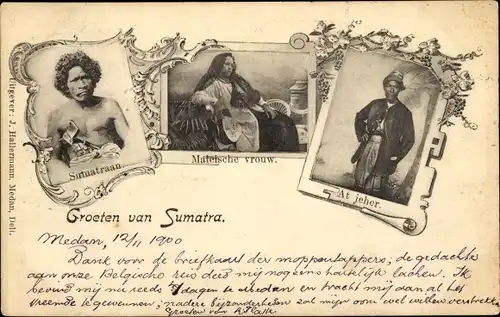 Uitgever: J. Hallermann, Medan, Deli.
Sumatraan
Maleische vrouw.
Atjeher.
Groeten van Sumatra.
Medan, 12/11 1900
Dank voor de briefkaart der moppentappers; de gedachte
aan onze Belgische reis deed mij nog eens hartelijk lachen. Ik
bevind mij nu reeds dagen te Medan en tracht mij aan al het
vreemde te gewennen; nadere bijzonderheden zal mijn oom wel willen verstrekk
Groeten van